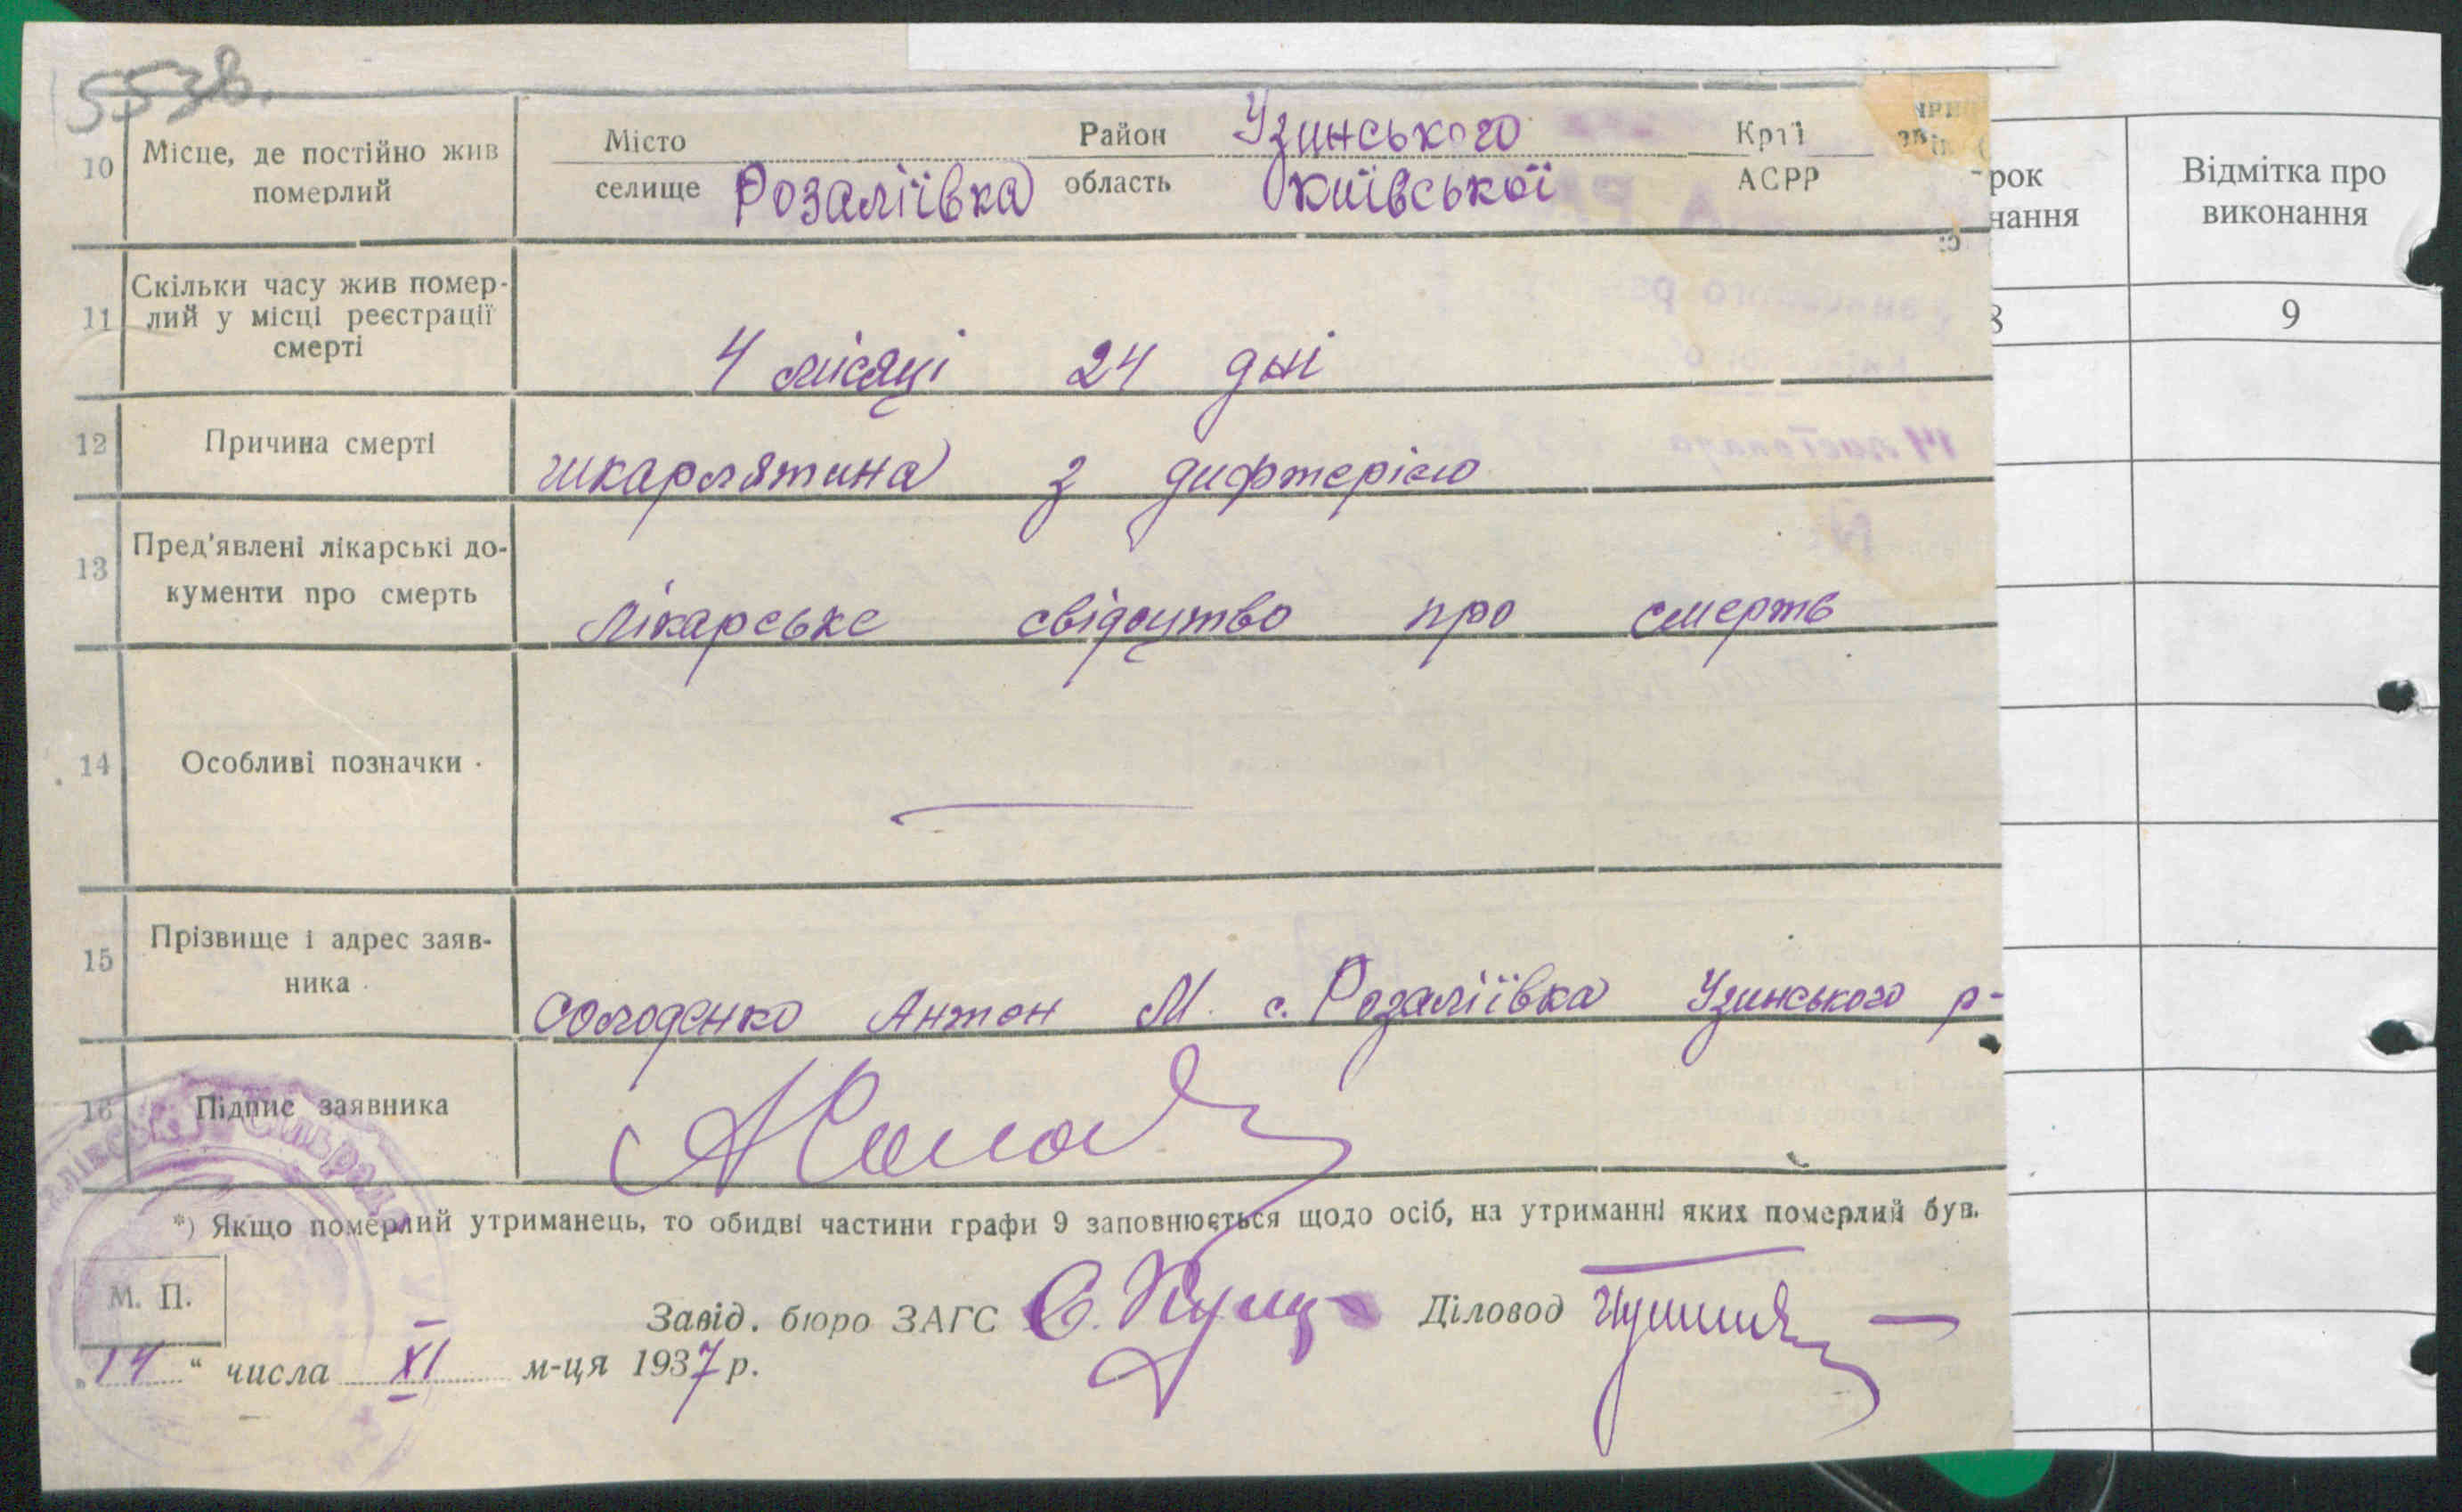 553в.
10 Місце, де постійно жив померлий
Місто Район Узинського Крії
селище Розаліївка область Київської АСРР
рок
нання
Відмітка про
виконання
11 Скільки часу жив помер-
лий у місці реєстрації
смерті
4 місяці 24 дні
9
12 Причина смерті
шкарлятина з дифтерією
13 Пред'явлені лікарські до-
кументи про смерть
лікарське свідоцтво про смерть
14 Особливі позначки
15 Прізвище і адрес заяв-
ника
Солоденко Антон М. с. Розаліївка Узинського р-
16 Підпис заявника
*) Якщо померлий утриманець, то обидві частини графи 9 заповнюється щодо осіб, на утриманні яких померлий був.
М. П.
Завід. бюро ЗАГС Діловод
„14“ числа XI м-ця 1937 р.